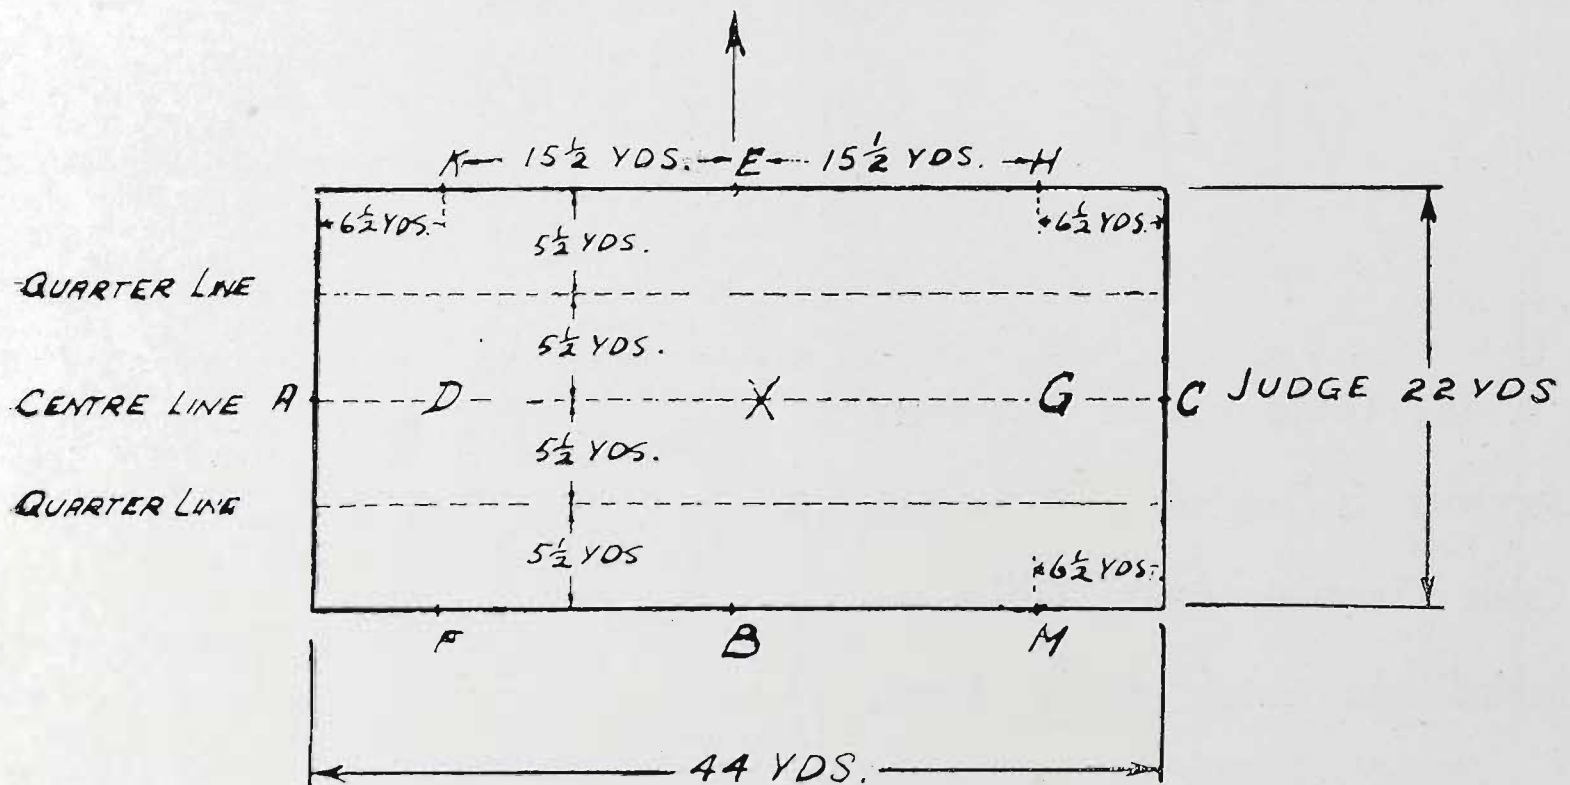 K 15½ YDS. E 15½ YDS. H
6½ YDS. 5½ YDS. 6½ YDS.
QUARTER LINE
5½ YDS.
CENTRE LINE A D X G C JUDGE 22 YDS
5½ YDS.
QUARTER LINE
5½ YDS 6½ YDS.
F B M
44 YDS.